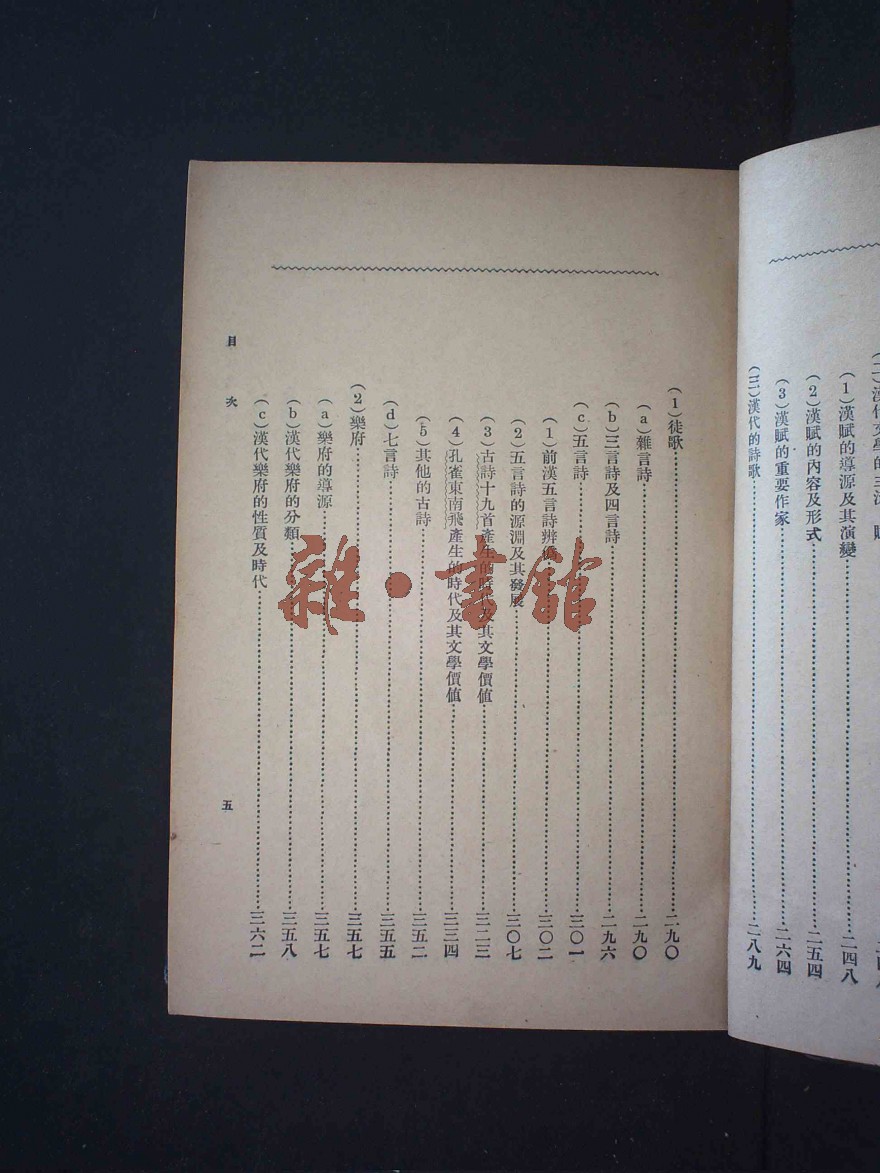 (二)漢代文學的主流
(1)漢賦的導源及其演變……二四八
(2)漢賦的內容及形式……二五四
(3)漢賦的重要作家……二六四
(三)漢代的詩歌……二八九
(1)徒歌……二九〇
(a)雜言詩……二九〇
(b)三言詩及四言詩……二九六
(c)五言詩……三〇一
(1)前漢五言詩辨僞……三〇二
(2)五言詩的源淵及其發展……三〇七
(3)古詩十九首產生的時代及其文學價値……三二三
(4)孔雀東南飛產生的時代及其文學價値……三三四
(5)其他的古詩……三五二
(d)七言詩……三五五
(2)樂府……三五七
(a)樂府的導源……三五七
(b)漢代樂府的分類……三五八
(c)漢代樂府的性質及時代……三六二
目次
五
雜·書館